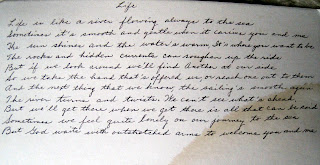 Life
Life is like a river flowing always to the sea
Sometimes it's smooth and gentle when it carries you and me
The sun shines and the water's warm. It's where you want to be
The rocks and hidden currents can roughen up the ride
But if we look around we'll find Another at our side
So we take the hand that's offered us or reach one out to them
And the next thing that we know, the sailing's smooth again
The river turns and twists. We can't see what's ahead,
But we'll get there when we get there is all that can be said
Sometimes we feel quite lonely on our journey to the sea
But God waits with outstretched arms to welcome you and me